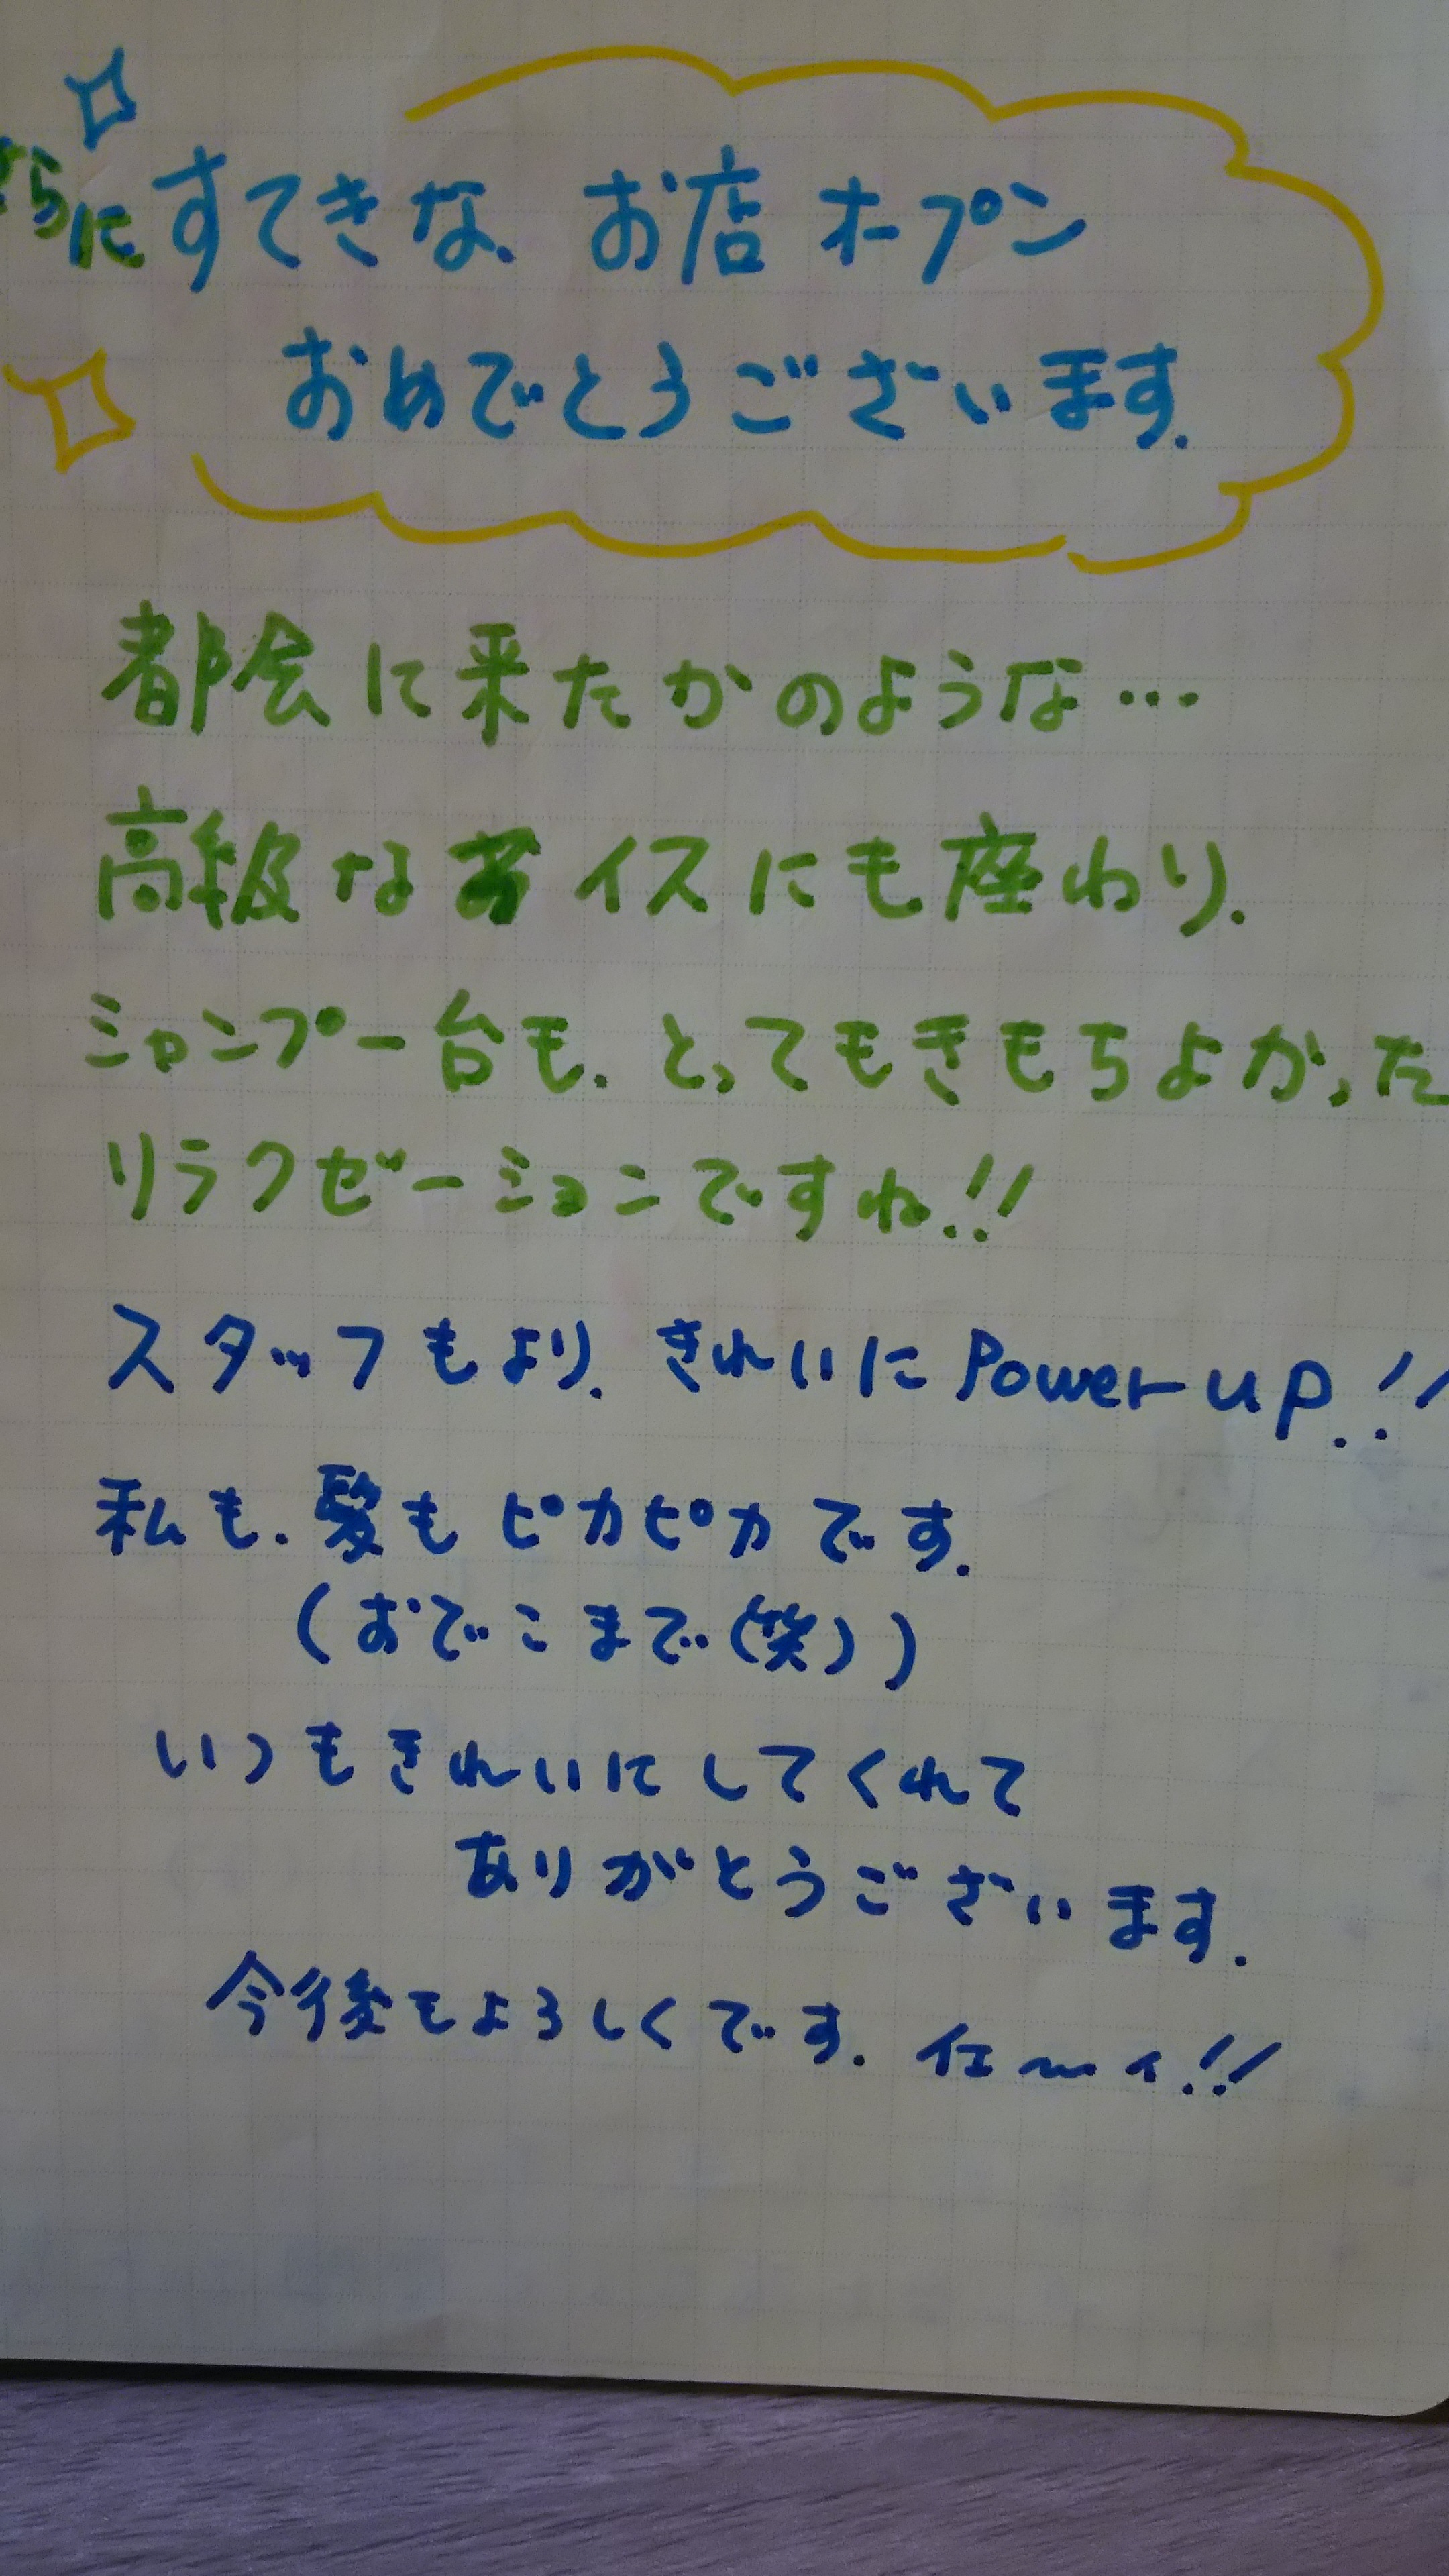 さらに すてきな、お店 オープン
おめでとうございます.
都会に来たかのような…
高級な イスにも座わり.
シャンプー台も. とってもきもちよかった
リラクゼーションですね!!
スタッフもより. きれいに Power up.!!
私も. 髪も ピカピカです.
(おでこまで(笑))
いつもきれいにしてくれて
ありがとうございます.
今後もよろしくです. イエ〜イ!!